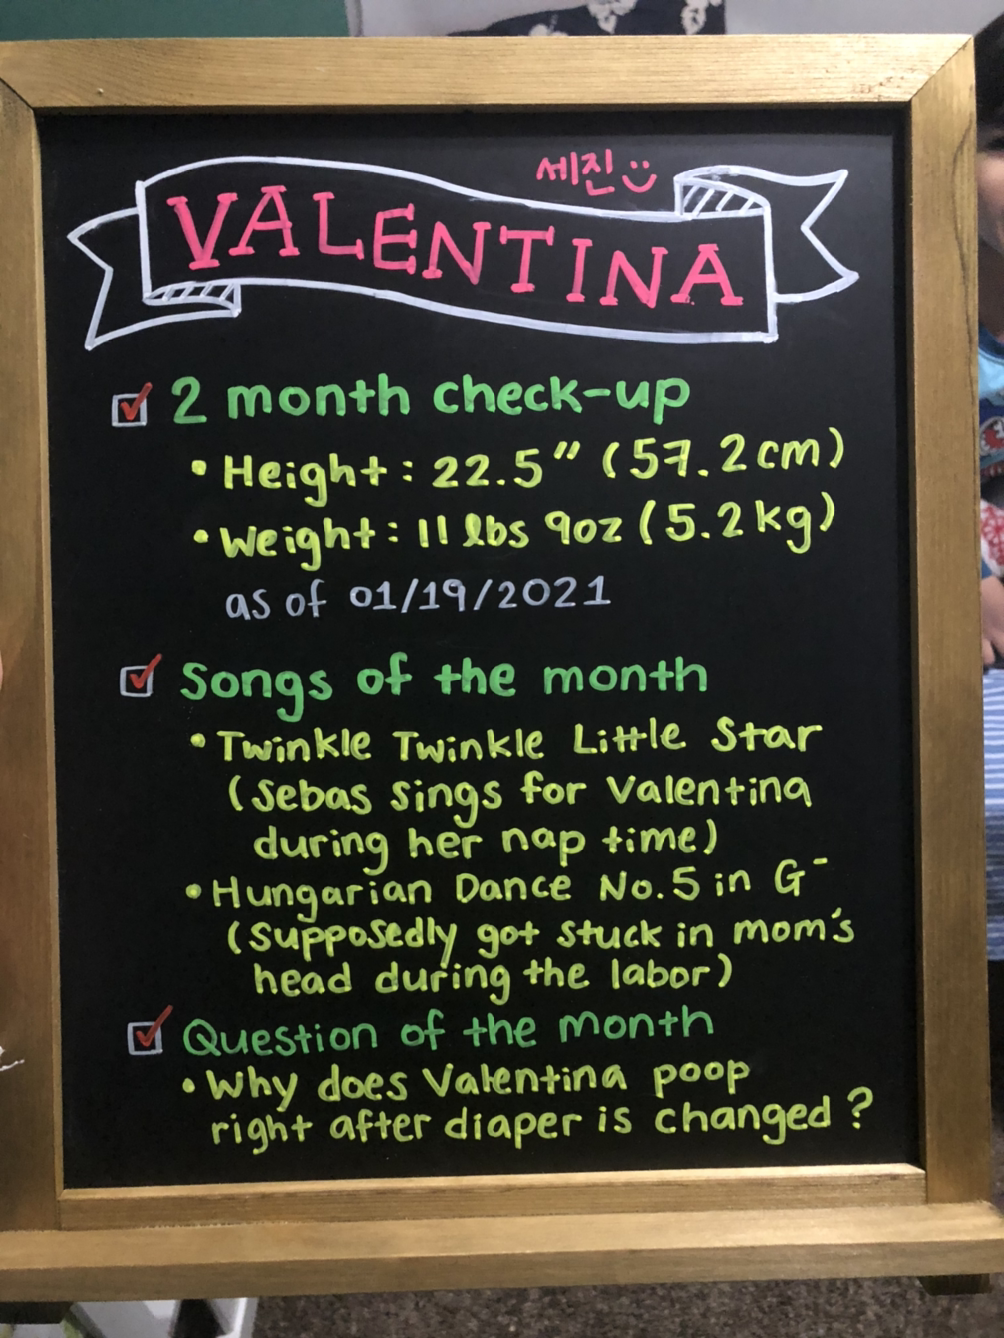 세진
VALENTINA
2 month check-up
• Height: 22.5" (57.2cm)
• Weight: 11 lbs 9oz (5.2kg)
as of 01/19/2021
Songs of the month
• Twinkle Twinkle Little Star
(Sebas sings for Valentina
during her nap time)
• Hungarian Dance No.5 in G-
(Supposedly got stuck in mom's
head during the labor)
Question of the month
• Why does Valentina poop
right after diaper is changed?